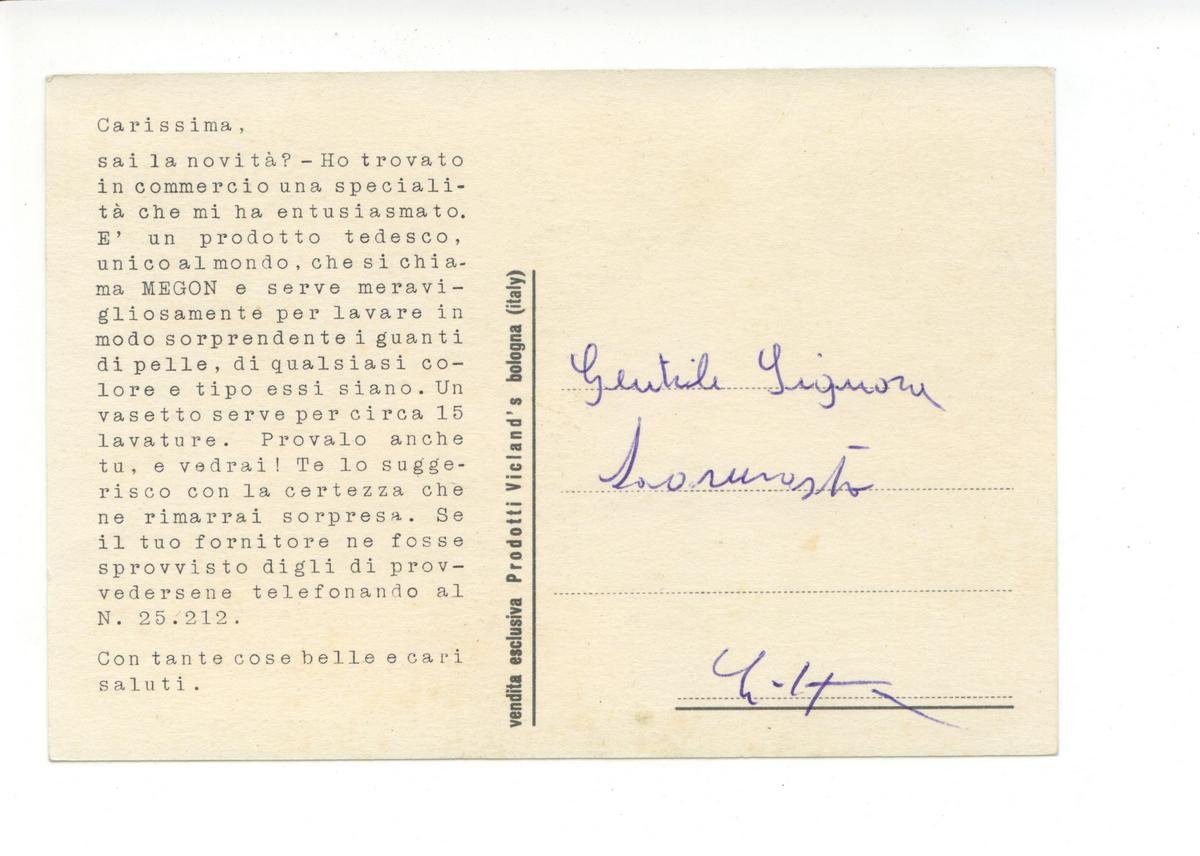 Carissima,
sai la novità? – Ho trovato
in commercio una speciali-
tà che mi ha entusiasmato.
E' un prodotto tedesco,
unico al mondo, che si chia-
ma MEGON e serve meravi-
gliosamente per lavare in
modo sorprendente i guanti
di pelle, di qualsiasi co-
lore e tipo essi siano. Un
vasetto serve per circa 15
lavature. Provalo anche
tu, e vedrai! Te lo sugge-
risco con la certezza che
ne rimarrai sorpresa. Se
il tuo fornitore ne fosse
sprovvisto digli di prov-
vedersene telefonando al
N. 25.212.
Con tante cose belle e cari
saluti.
vendita esclusiva Prodotti Vicland's bologna (italy)
Gentile Signora